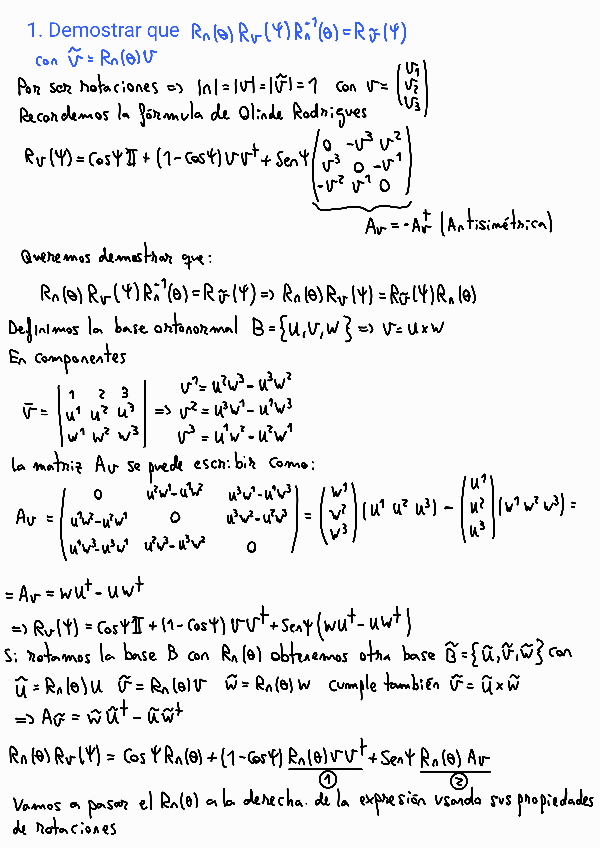 1. Demostrar que Rₙ(θ) Rᵥ(Ψ) Rₙ⁻¹(θ) = R_ṽ(Ψ)
con ṽ = Rₙ(θ) v
Por ser rotaciones => |n| = |v| = |ṽ| = 1 con v = (v1 v2 v3)
Recordemos la fórmula de Olinde Rodrigues
Rᵥ(Ψ) = CosΨ 𝕀 + (1 - CosΨ) v v^t + SenΨ (0 -v³ v² ; v³ 0 -v¹ ; -v² v¹ 0)
Aᵥ = -Aᵥ^t (Antisimétrica)
Queremos demostrar que:
Rₙ(θ) Rᵥ(Ψ) Rₙ⁻¹(θ) = R_ṽ(Ψ) => Rₙ(θ) Rᵥ(Ψ) = R_ṽ(Ψ) Rₙ(θ)
Definimos la base ortonormal B = {u, v, w} => v = u x w
En componentes
v̄ = |1 2 3 ; u¹ u² u³ ; w¹ w² w³| => v¹ = u²w³ - u³w² ; v² = u³w¹ - u¹w³ ; v³ = u¹w² - u²w¹
la matriz Aᵥ se puede escribir como:
Aᵥ = (0 u²w¹-u¹w² u³w¹-u¹w³ ; u¹w²-u²w¹ 0 u³w²-u²w³ ; u¹w³-u³w¹ u²w³-u³w² 0) = (w¹ w² w³) (u¹ u² u³) - (u¹ u² u³) (w¹ w² w³) =
= Aᵥ = w u^t - u w^t
=> Rᵥ(Ψ) = CosΨ 𝕀 + (1 - CosΨ) v v^t + SenΨ (w u^t - u w^t)
Si rotamos la base B con Rₙ(θ) obtenemos otra base B̃ = {ũ, ṽ, w̃} con
ũ = Rₙ(θ) u ṽ = Rₙ(θ) v w̃ = Rₙ(θ) w cumple también ṽ = ũ x w̃
=> A_ṽ = w̃ ũ^t - ũ w̃^t
Rₙ(θ) Rᵥ(Ψ) = Cos Ψ Rₙ(θ) + (1 - CosΨ) Rₙ(θ) v v^t + SenΨ Rₙ(θ) Aᵥ
① ②
Vamos a pasar el Rₙ(θ) a la derecha. de la expresión usando sus propiedades
de rotaciones